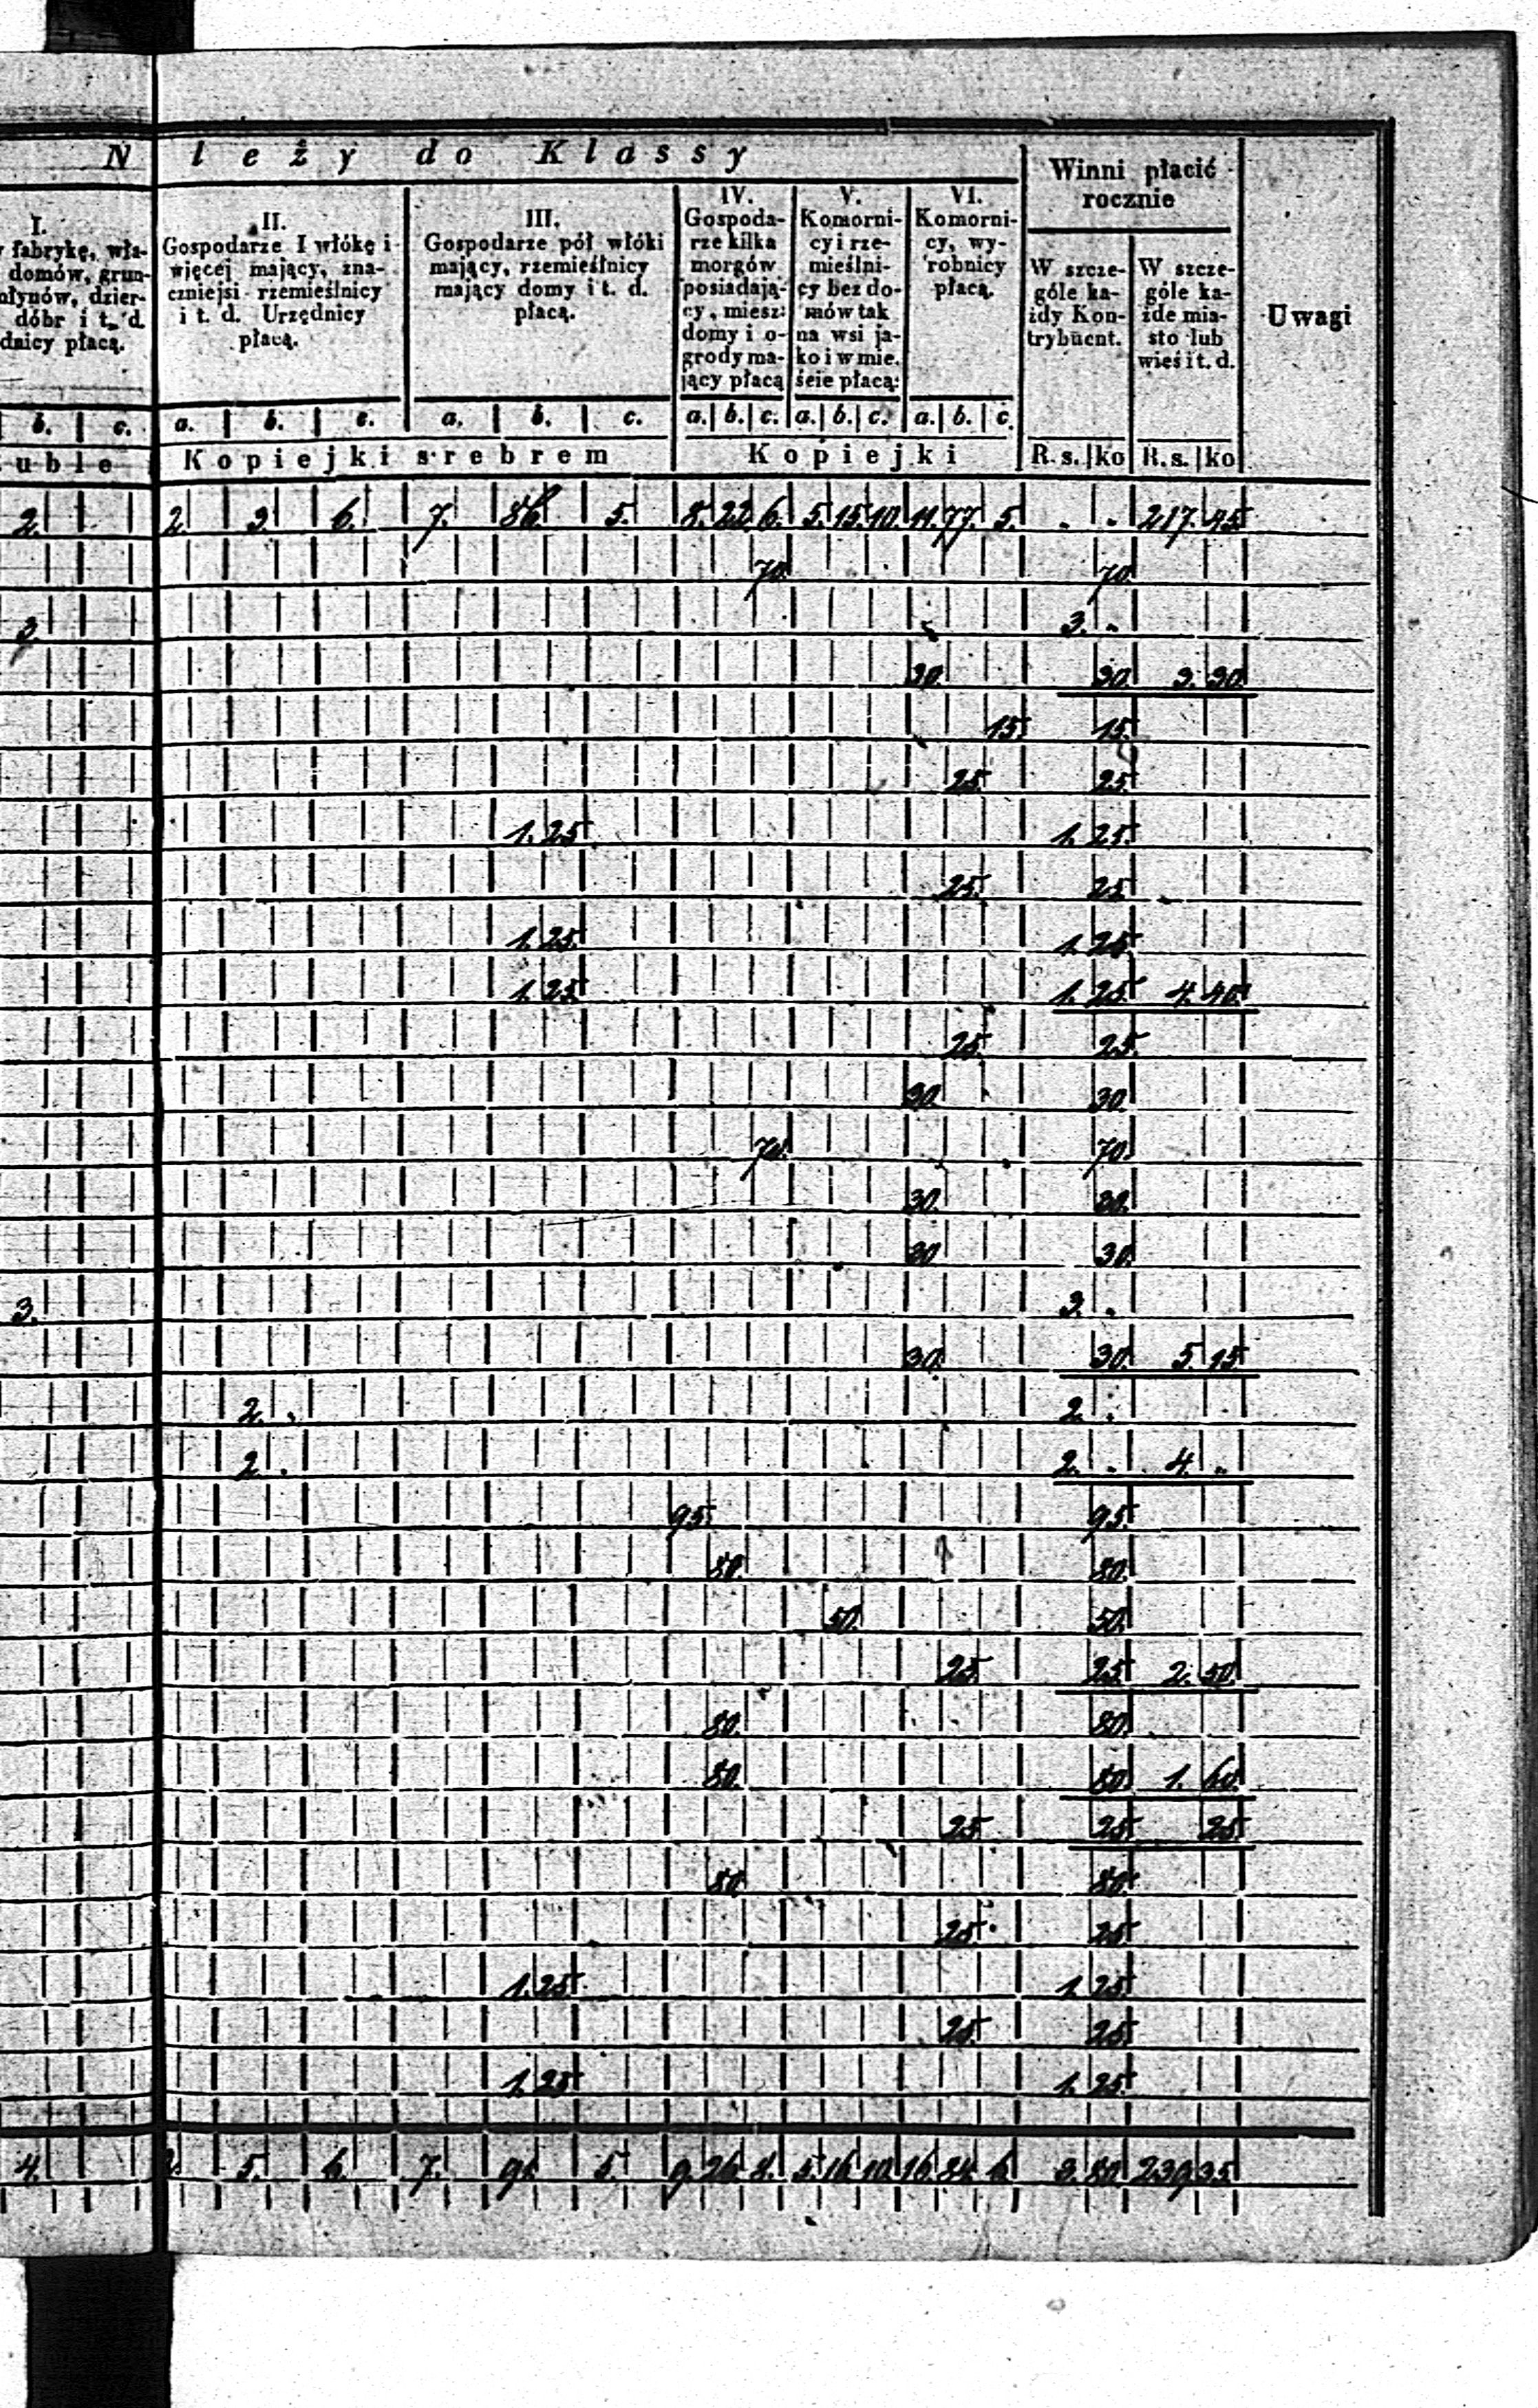 N leży do Klassy
Winni płacić rocznie
Uwagi
I.
fabrykę, wła-
domów, grun-
młynów, dzier-
dóbr i t. d.
dnicy płacą.
II.
Gospodarze I włókę i
więcej mający, zna-
czniejsi rzemieślnicy
i t. d. Urzędnicy
płacą.
III.
Gospodarze pół włóki
mający, rzemieślnicy
mający domy i t. d.
płacą.
IV.
Gospoda-
rze kilka
morgów
posiadają-
cy, miesz:
domy i o-
grody ma-
jący płacą
V.
Komorni-
cy i rze-
mieślni-
cy bez do-
mów tak
na wsi ja-
ko i w mie.
ście płacą:
VI.
Komorni-
cy, wy-
robnicy
płacą.
W szcze-
góle ka-
żdy Kon-
trybuent.
W szcze-
góle ka-
żde mia-
sto lub
wieś i t. d.
b. c. a. b. c. a. b. c. a. b. c. a. b. c. a. b. c.
uble Kopiejki srebrem Kopiejki R. s. ko R. s. ko
2. 2. 3. 6. 7. 86 5. 8. 22. 6. 5. 15. 10. 11. 77. 5. . . 217. 45
70. 70.
3 3. .
30. 30. 3. 30.
15 15.
25. 25.
1. 25 1. 25.
25. 25
1. 25. 1. 25.
1. 25 1. 25 4. 40.
25. 25
30. 30.
70. 70.
30. 30.
30 30.
3. 3. .
30. 30. 5. 15
2. . 2. .
2. . 2. . 4. .
95. 95.
80. 80.
50. 50.
25 25 2. 50.
80. 80.
80. 80. 1. 60.
25 25 25
80. 80.
25. 25
1. 25 1. 25
25. 25
1. 25 1. 25
4. 2. 5. 6. 7. 91. 5. 9. 26. 8. 5. 16. 10. 16. 84. 6. 3. 80. 239. 35